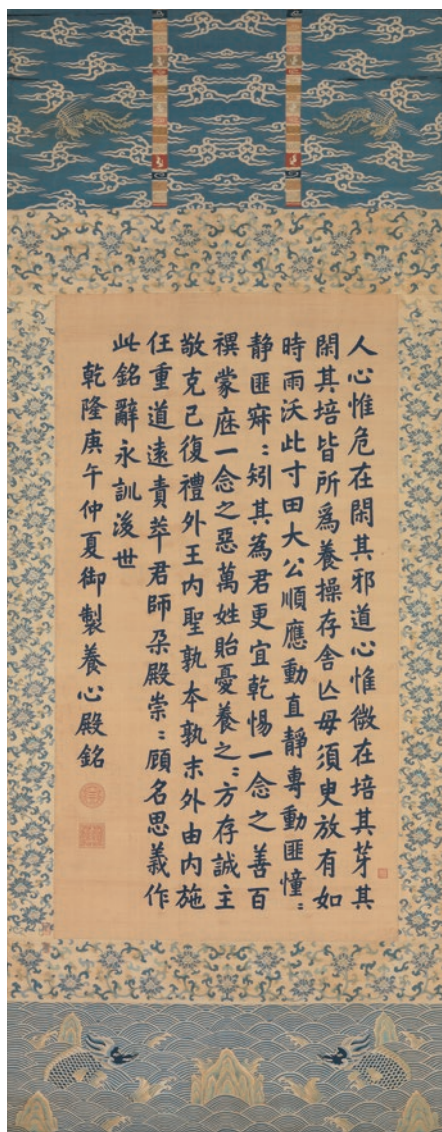 人心惟危在閑其邪道心惟微在培其芽其
閑其培皆所爲養操存舍亾毋須臾放有如
時雨沃此寸田大公順應動直静專動匪憧〻
静匪寐〻矧其為君更宜乾惕一念之善百
禩蒙庥一念之惡萬姓貽憂養之〻方存誠主
敬克己復禮外王内聖孰本孰末外由内施
任重道遠責萃君師朶殿崇〻顧名思義作
此銘辭永訓後世
乾隆庚午仲夏御製養心殿銘